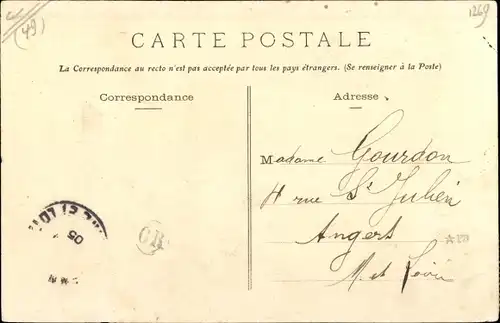 (49)
1269
CARTE POSTALE
La Correspondance au recto n'est pas acceptée par tous les pays étrangers. (Se renseigner à la Poste)
Correspondance
Adresse
Madame Gourdon
4 rue St Julien
Angers
M. et Loire
ET LOIR
05
OR